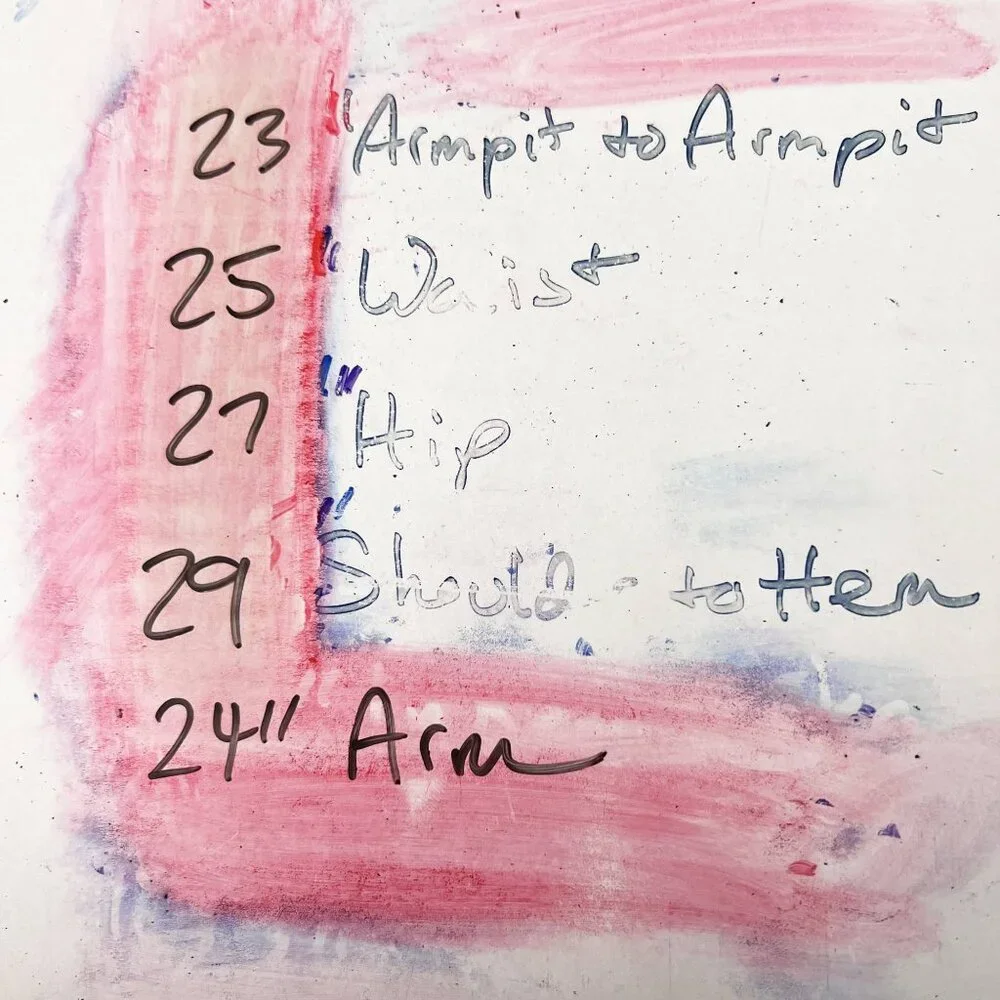 23" Armpit to Armpit
25" Waist
27" Hip
29" to Hem
24" Arm